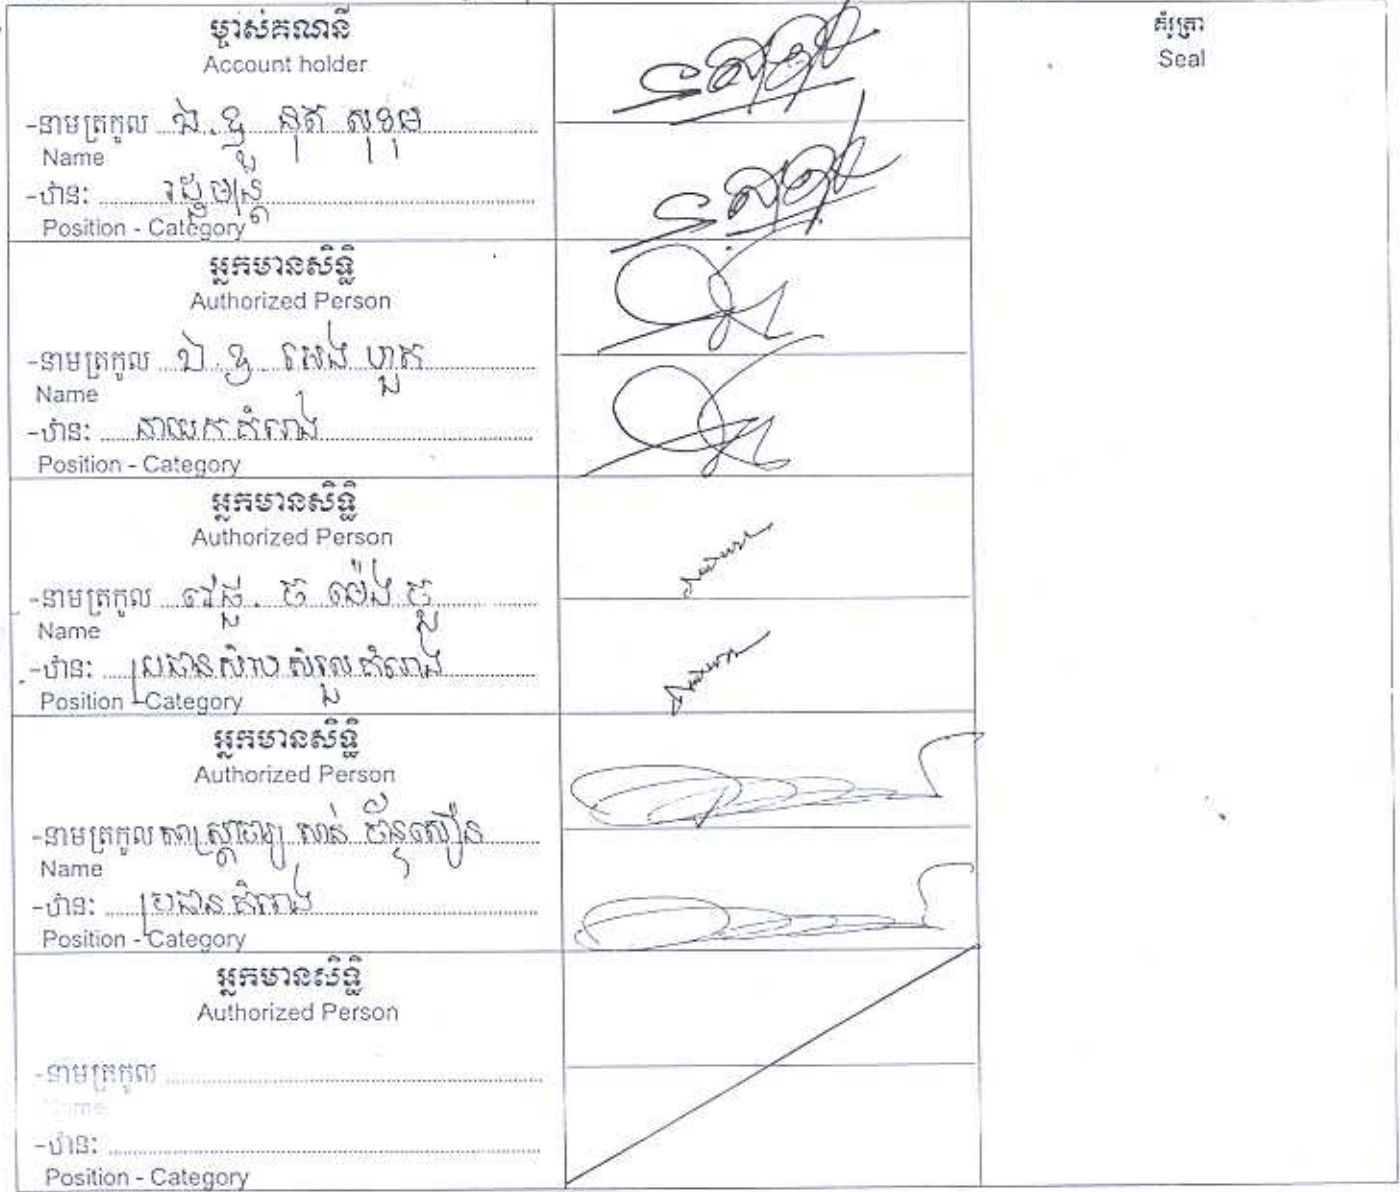 ម្ចាស់គណនី
Account holder
-នាមត្រកូល ឯ.ឧ នុត សុខុម
Name
-ឋានៈ រដ្ឋមន្ត្រី
Position - Category
គំរូត្រា
Seal
អ្នកមានសិទ្ធិ
Authorized Person
-នាមត្រកូល ឯ.ឧ. អេង ហួត
Name
-ឋានៈ នាយកគំរោង
Position - Category
អ្នកមានសិទ្ធិ
Authorized Person
-នាមត្រកូល ង៉េង ជួ
Name
-ឋានៈ ប្រធានសំរបសំរួលគំរោង
Position - Category
អ្នកមានសិទ្ធិ
Authorized Person
-នាមត្រកូល សាស្ត្រាចារ្យ ច័ន្ទសឿន
Name
-ឋានៈ ប្រធានគំរោង
Position - Category
អ្នកមានសិទ្ធិ
Authorized Person
-នាមត្រកូល
Name
-ឋានៈ
Position - Category